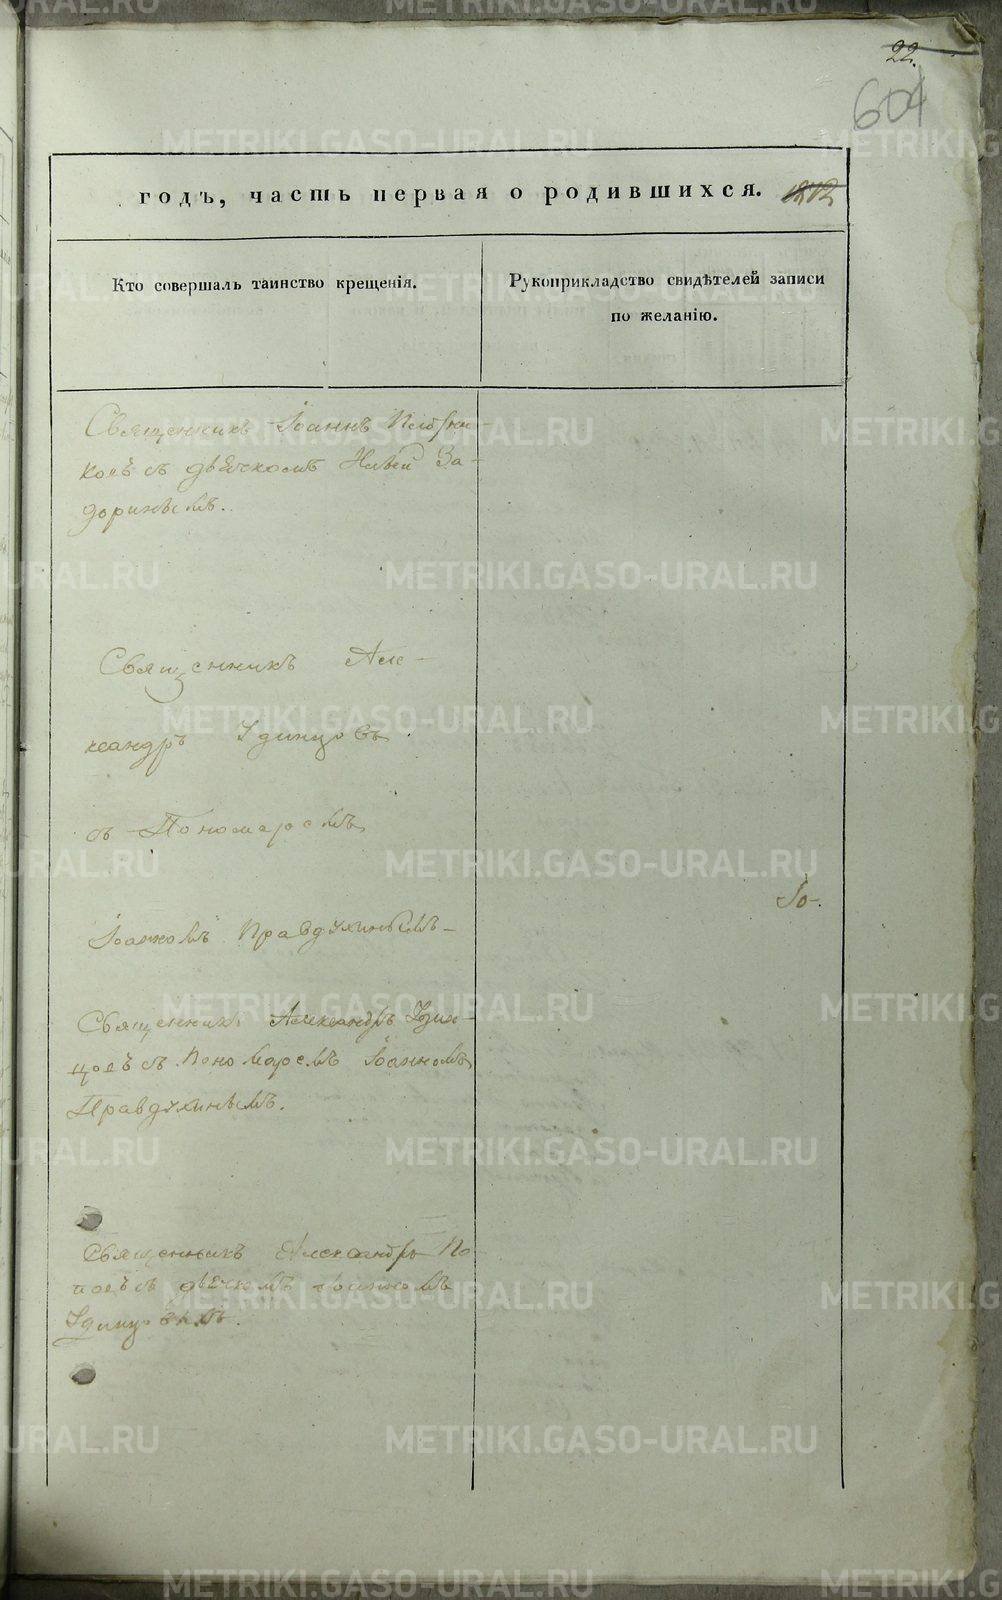 22.
604
годъ, часть первая о родившихся.
Кто совершалъ таинство крещенія.
Рукоприкладство свидѣтелей записи
по желанію.
Священникъ Іоаннъ
ковъ съ дьячкомъ За-
доринымъ.
Священникъ Але-
ксандръ Удинцовъ
съ Пономаремъ
Іо-
Іоанномъ Правдухинымъ
Священникъ Александръ Удин-
цовъ съ Пономаремъ Іоанномъ
Правдухинымъ.
Священникъ Александръ По-
повъ съ дьячкомъ Іоанномъ
Удинцовымъ.
METRIKI.GASO-URAL.RU